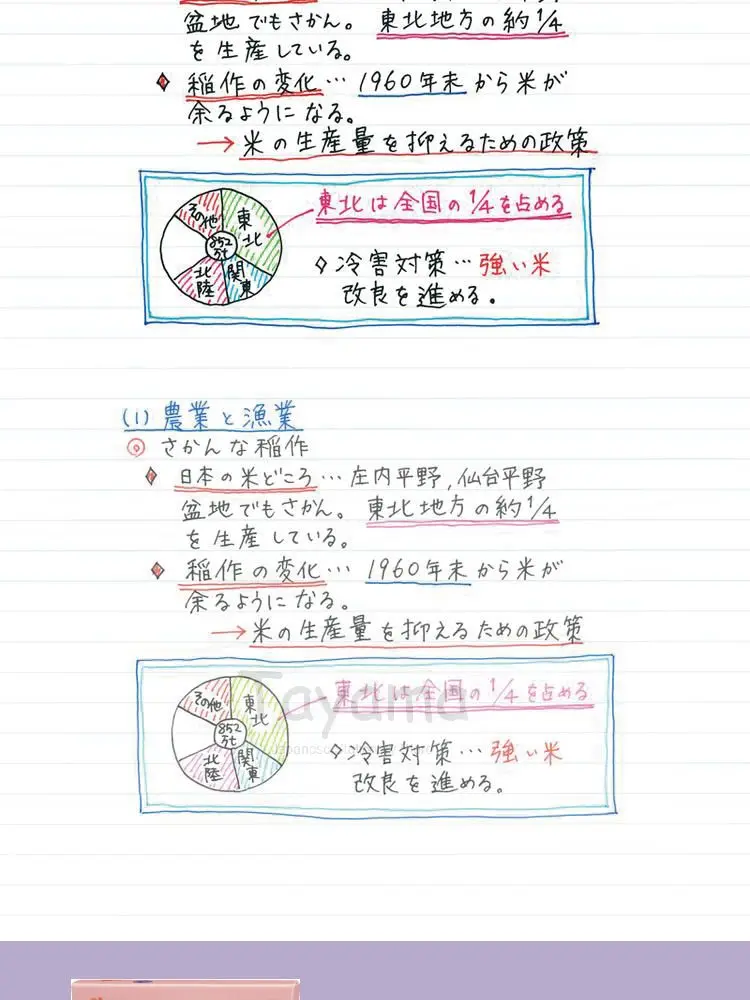 盆地でもさかん。東北地方の約1/4
を生産している。
稲作の変化…1960年末から米が
余るようになる。
→米の生産量を抑えるための政策
その他
東北
852万t
北陸
関東
東北は全国の1/4を占める
◇冷害対策…強い米
改良を進める。
(1)農業と漁業
◎さかんな稲作
◆日本の米どころ…庄内平野,仙台平野
盆地でもさかん。東北地方の約1/4
を生産している。
◆稲作の変化…1960年末から米が
余るようになる。
→米の生産量を抑えるための政策
その他
東北
852万t
北陸
関東
東北は全国の1/4を占める
◇冷害対策…強い米
改良を進める。
Tayama